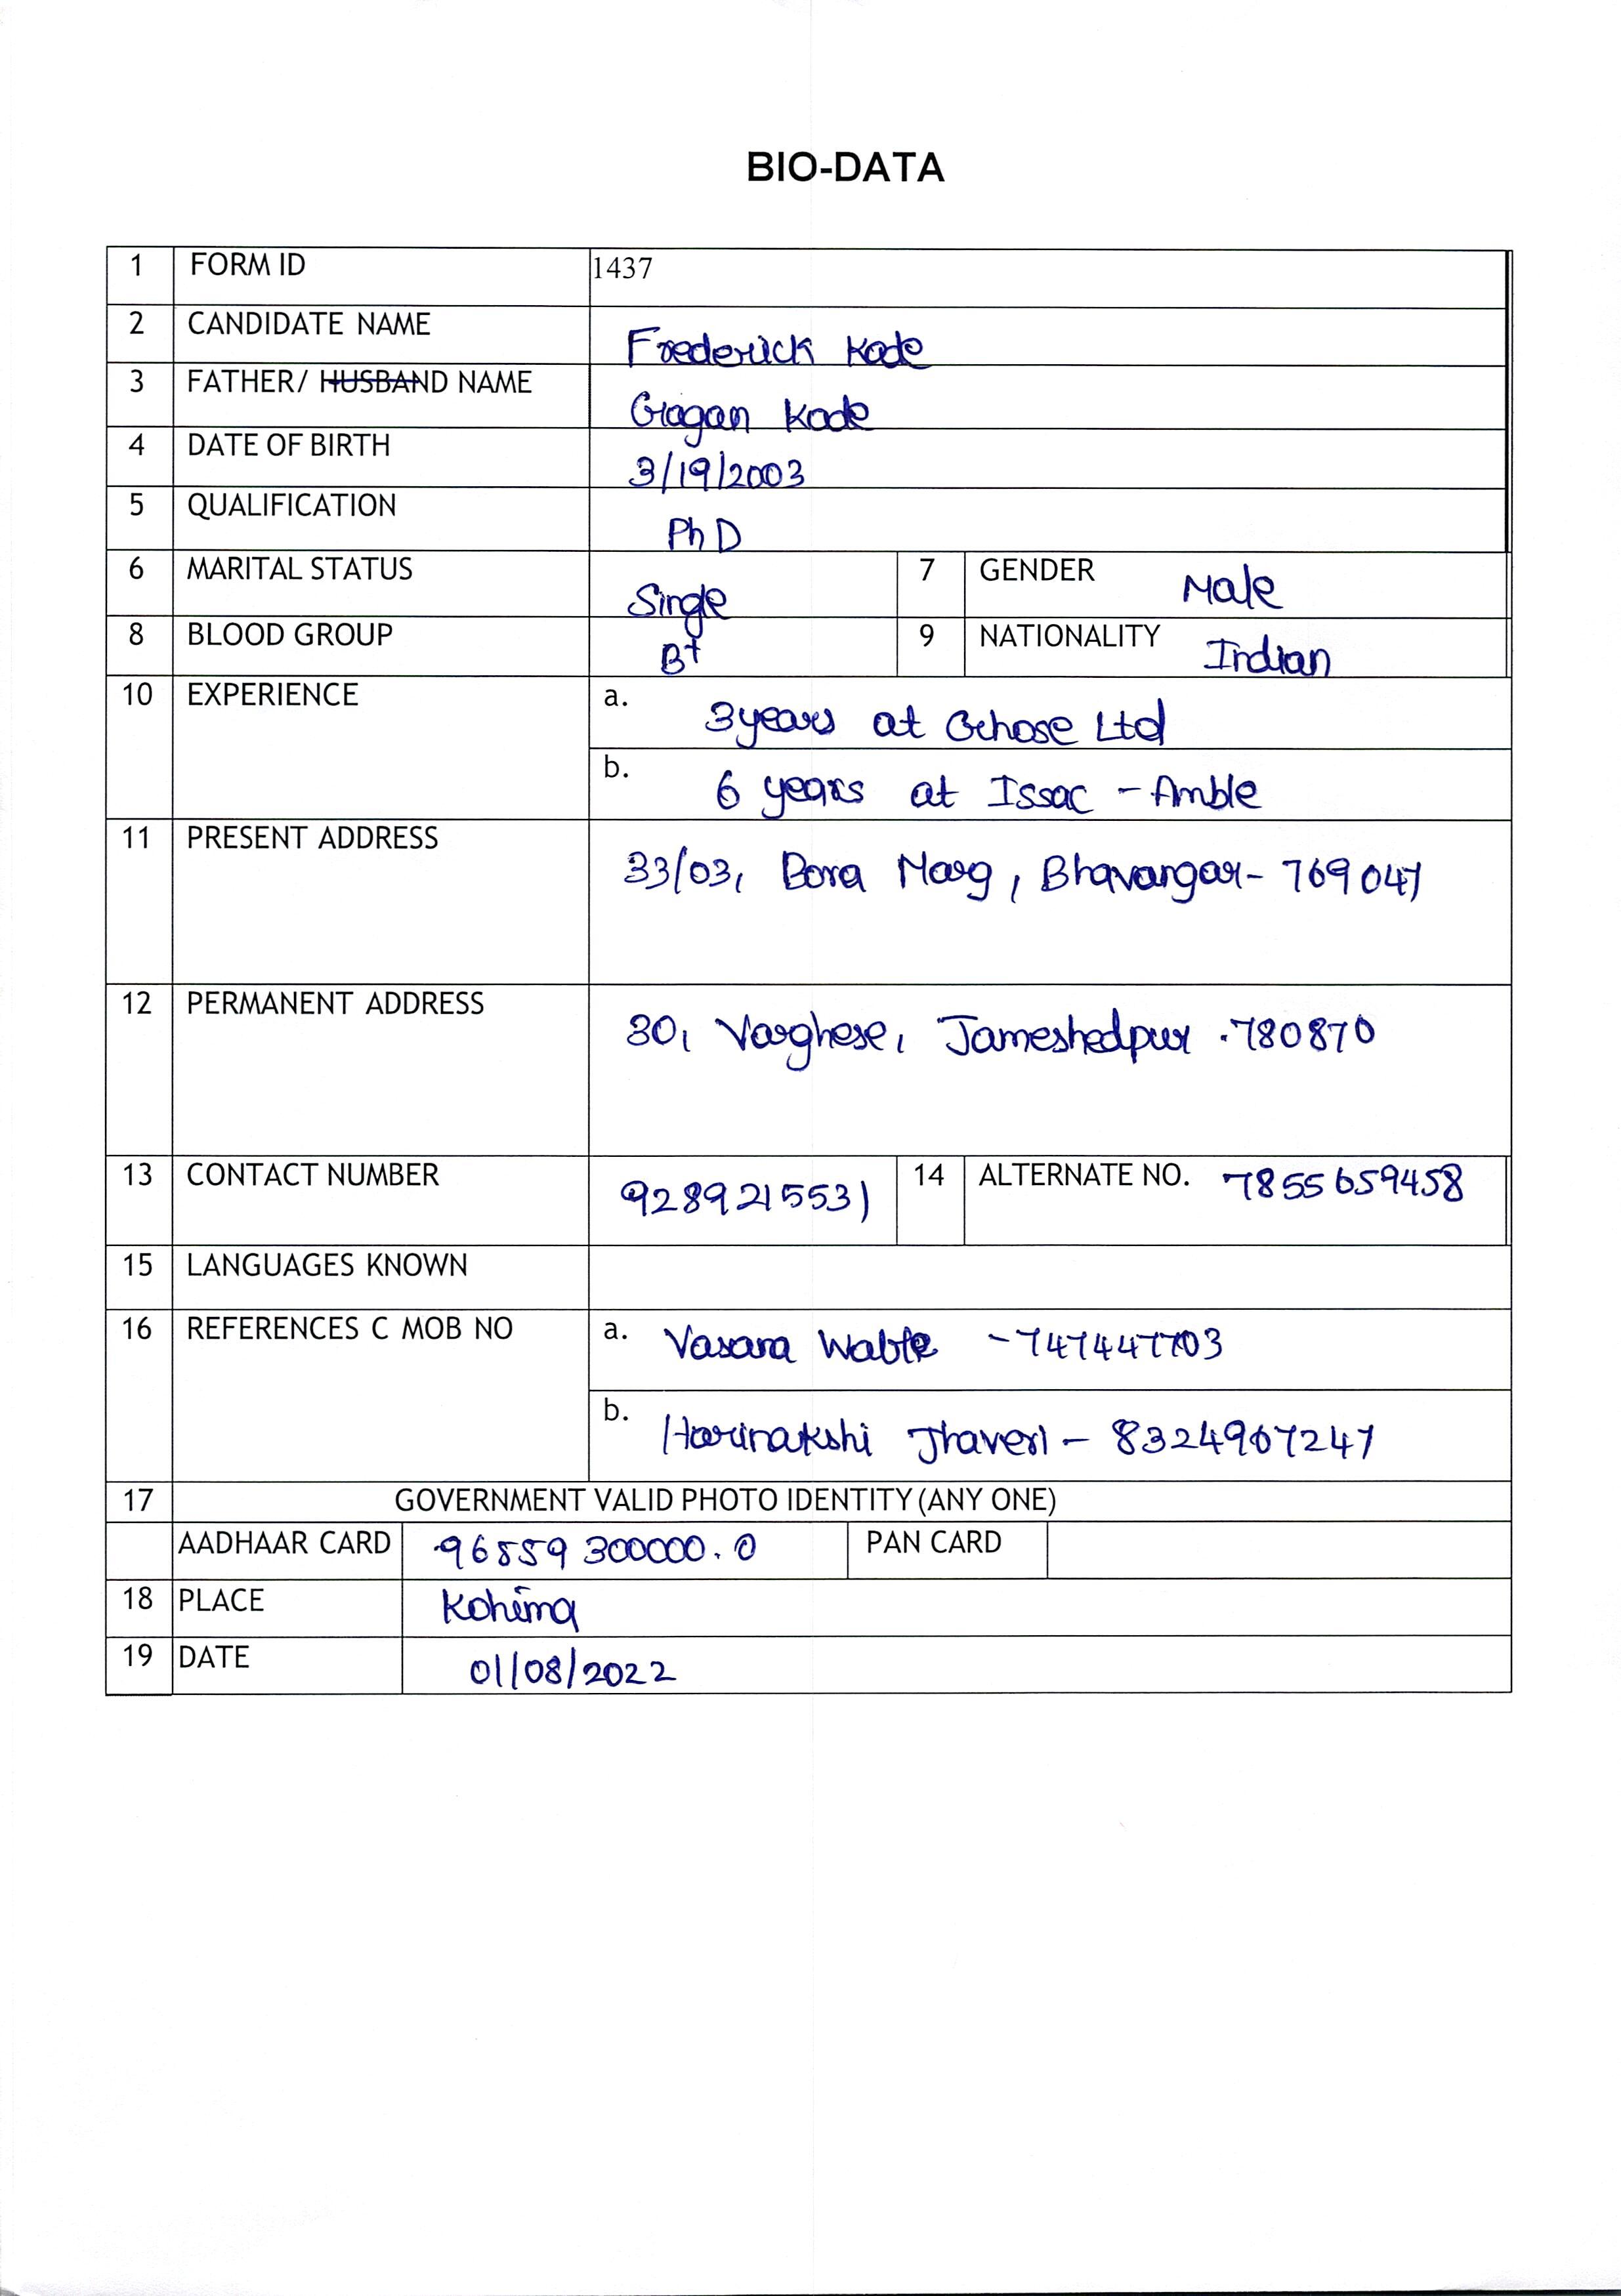 BIO-DATA
1 FORM ID 1437
2 CANDIDATE NAME Frederick Kade
3 FATHER/ HUSBAND NAME Gagan Kade
4 DATE OF BIRTH 3/19/2003
5 QUALIFICATION PhD
6 MARITAL STATUS Single 7 GENDER Male
8 BLOOD GROUP B+ 9 NATIONALITY Indian
10 EXPERIENCE a. 3 years at Ghose Ltd
b. 6 years at Issac - Amble
11 PRESENT ADDRESS 33/03, Bora Marg, Bhavangar - 769047
12 PERMANENT ADDRESS 30, Varghese, Jameshedpur . 780870
13 CONTACT NUMBER 9289215531 14 ALTERNATE NO. 7855659458
15 LANGUAGES KNOWN
16 REFERENCES C MOB NO a. Vasana Wable - 7474477703
b. Harinakshi Jhaveri - 8324967247
17 GOVERNMENT VALID PHOTO IDENTITY (ANY ONE)
AADHAAR CARD 96559300000.0 PAN CARD
18 PLACE Kohima
19 DATE 01/08/2022